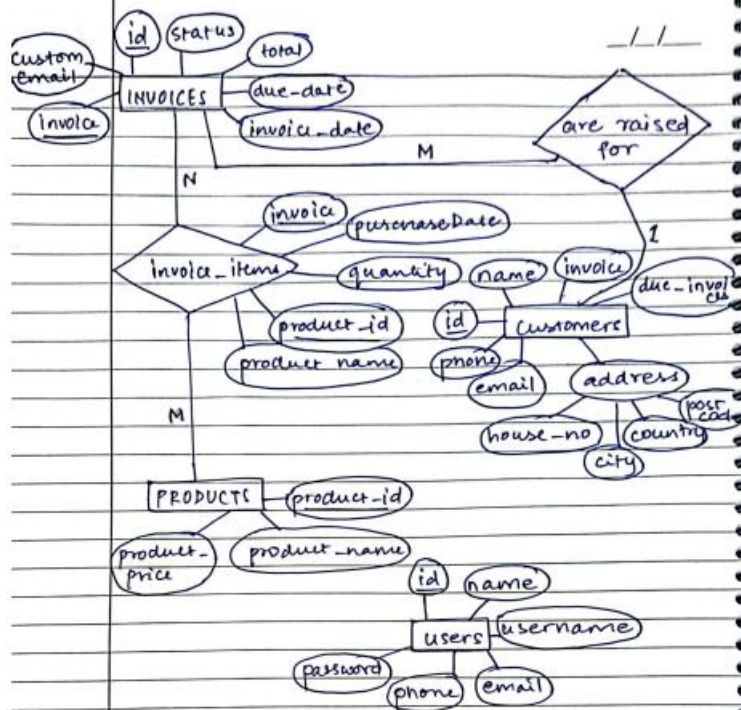 id status total
custom email
INVOICES
due-date
invoice
invoice-date
_/_/_
are raised for
M
N
1
invoice_items
invoice
purchaseDate
quantity
product_id
product name
name invoice
due_invoi
ces
id
customers
phone
email
address
house-no
city
country
post
cod
M
PRODUCTS
product-id
product_
price
product_name
id name
users
username
password
phone
email